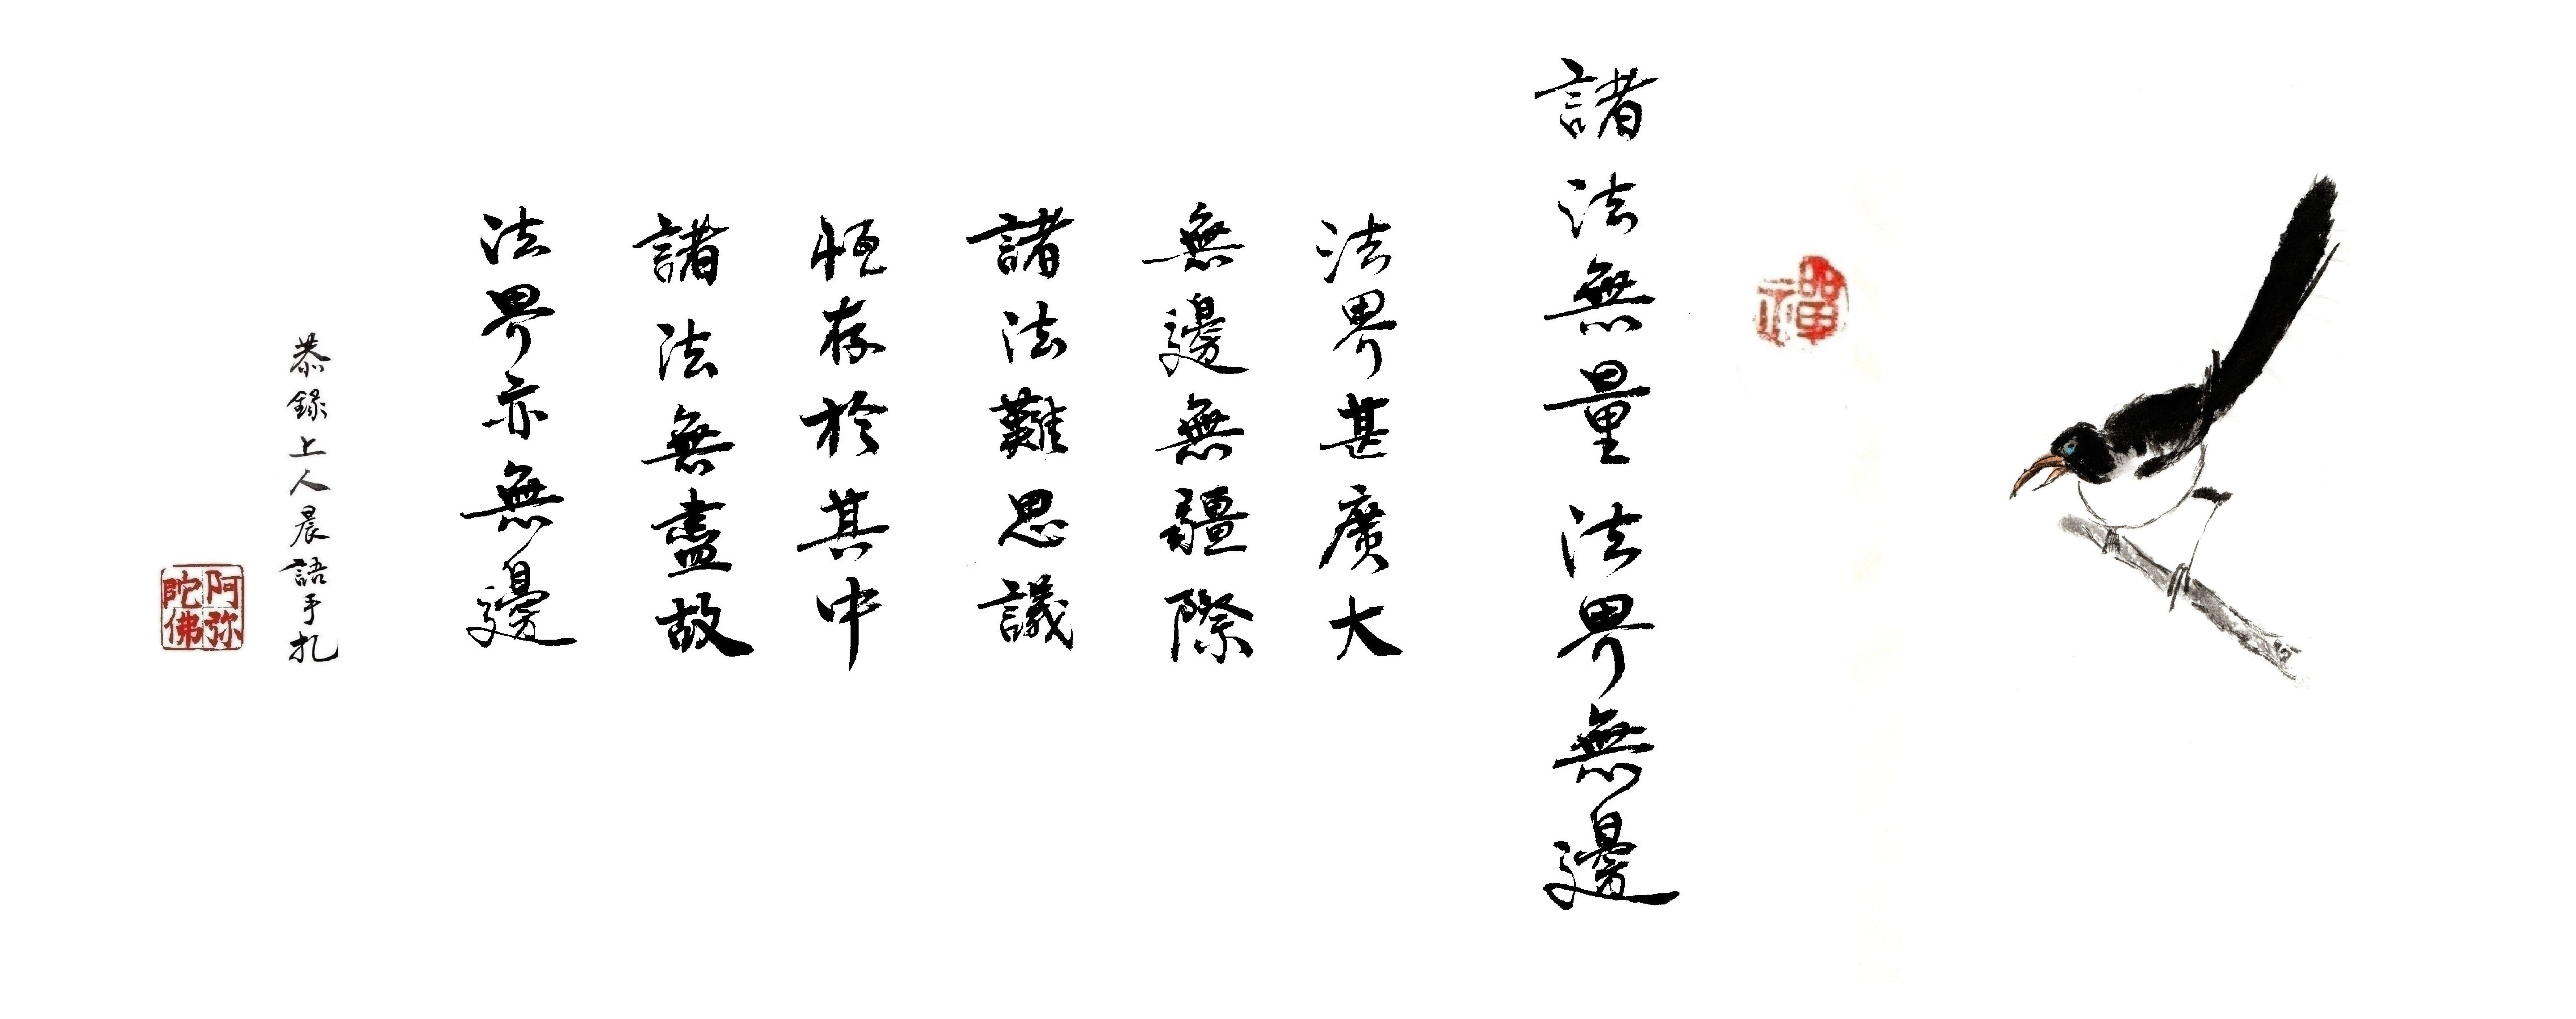 禪
諸法無量法界無邊
法界甚廣大
無邊無疆際
諸法難思議
恒存於其中
諸法無盡故
法界亦無邊
恭錄上人晨語手扎
阿弥陀佛